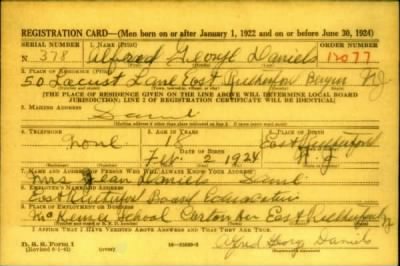 REGISTRATION CARD—(Men born on or after January 1, 1922 and on or before June 30, 1924)
SERIAL NUMBER 1. NAME (Print) ORDER NUMBER
N 378 Alfred George Daniels 12077
2. PLACE OF RESIDENCE (Print)
50 Locust Lane East Rutherford Bergen NJ
[THE PLACE OF RESIDENCE GIVEN ON THE LINE ABOVE WILL DETERMINE LOCAL BOARD
JURISDICTION; LINE 2 OF REGISTRATION CERTIFICATE WILL BE IDENTICAL]
3. MAILING ADDRESS
Same
4. TELEPHONE 5. AGE IN YEARS 6. PLACE OF BIRTH
none 18 East Rutherford
DATE OF BIRTH
Feb 2 1924 N.J.
7. NAME AND ADDRESS OF PERSON WHO WILL ALWAYS KNOW YOUR ADDRESS
Mrs Jean Daniels Same
8. EMPLOYER'S NAME AND ADDRESS
East Rutherford Board Education
9. PLACE OF EMPLOYMENT OR BUSINESS
School Carlton Ave East Rutherford NJ
I AFFIRM THAT I HAVE VERIFIED ABOVE ANSWERS AND THAT THEY ARE TRUE.
D. S. S. Form 1
(Revised 6-9-42) (over) Alfred George Daniels